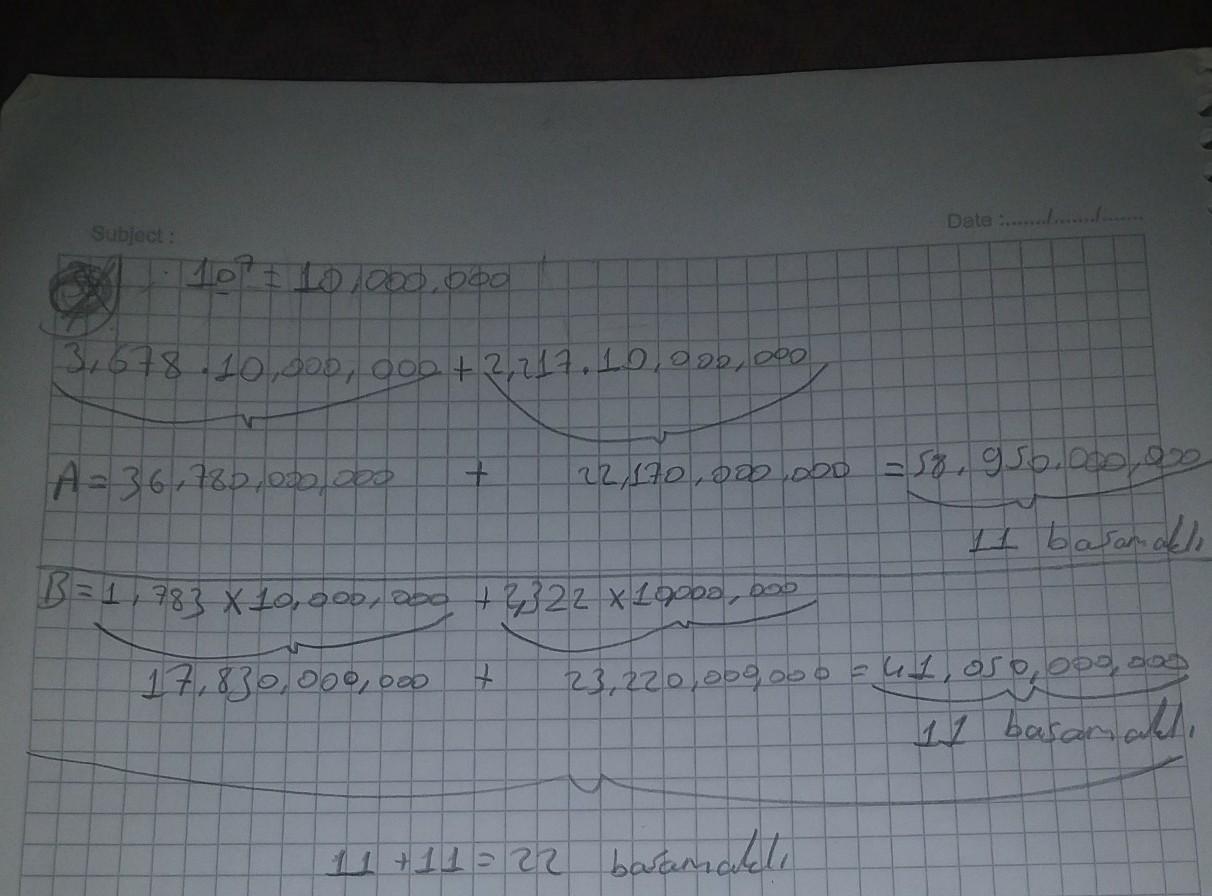 Subject :
Date :......./......./.......
10⁷ = 10,000,000
3,678.10,000,000 + 2,217.10,000,000
A = 36,780,000,000 + 22,170,000,000 = 58,950,000,000
11 basamaklı
B = 1,783 x 10,000,000 + 2,322 x 10000,000
17,830,000,000 + 23,220,000,000 = 41,050,000,000
11 basamaklı
11 + 11 = 22 basamaklı